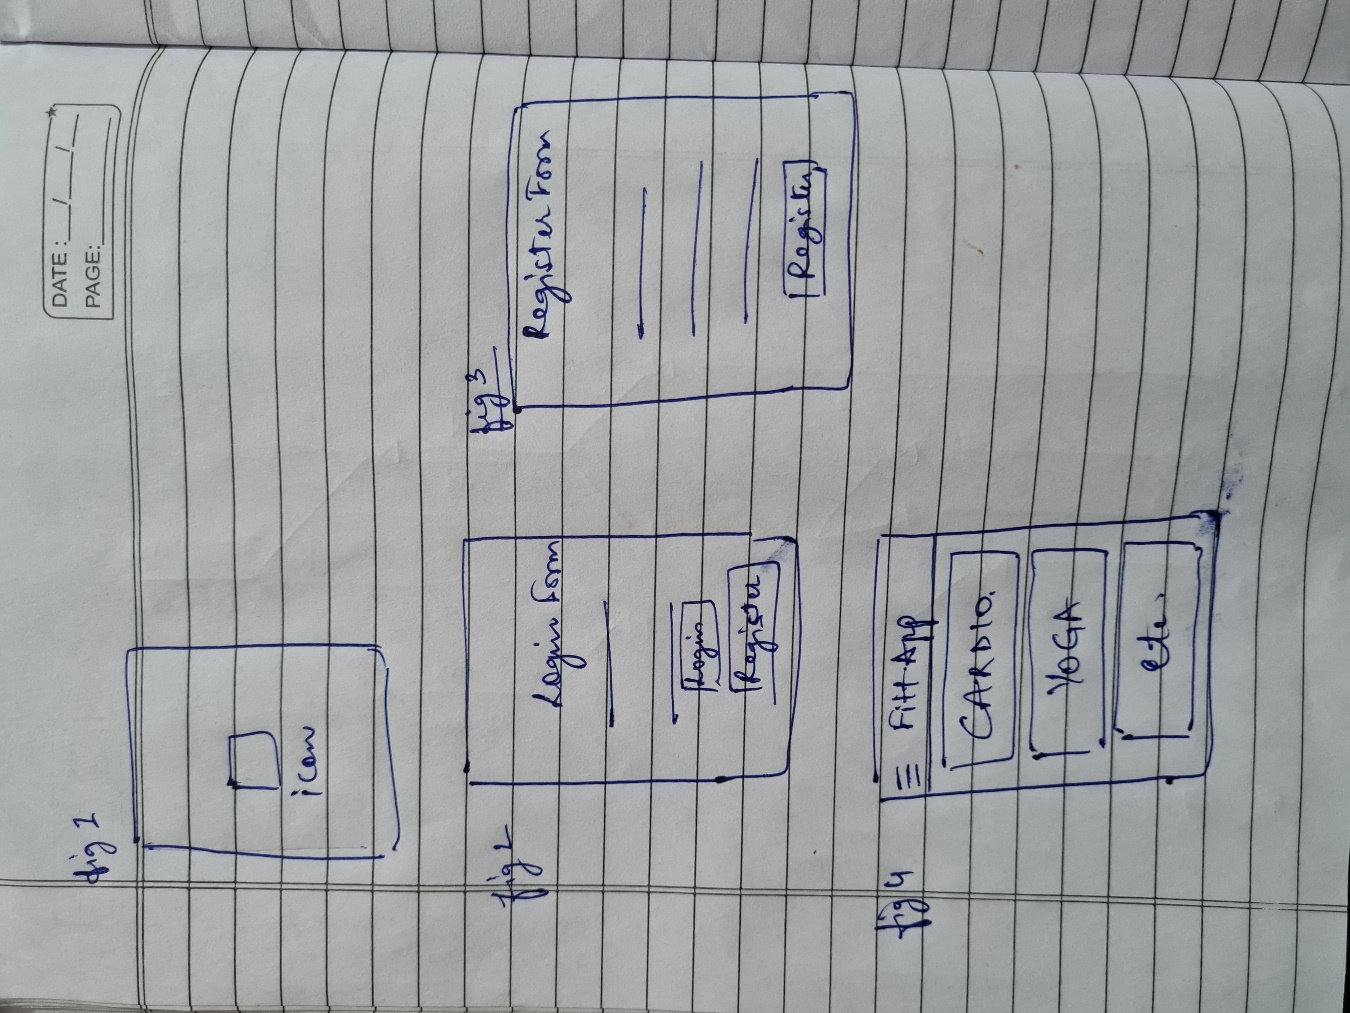 DATE: __/__/__
PAGE:
fig 1
icon
fig 2
Login Form
Login
Register
fig 3
Register Form
Register
fig 4
Fitt App
CARDIO.
YOGA
etc.